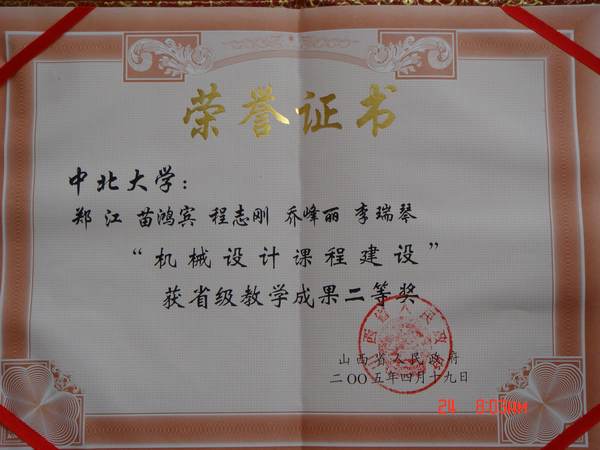 荣誉证书
中北大学：
郑江 苗鸿宾 程志刚 乔峰丽 李瑞琴
“机械设计课程建设”
获省级教学成果二等奖
山西省人民政府
二OO五年四月十九日
山西省人民政府
24 8:03AM